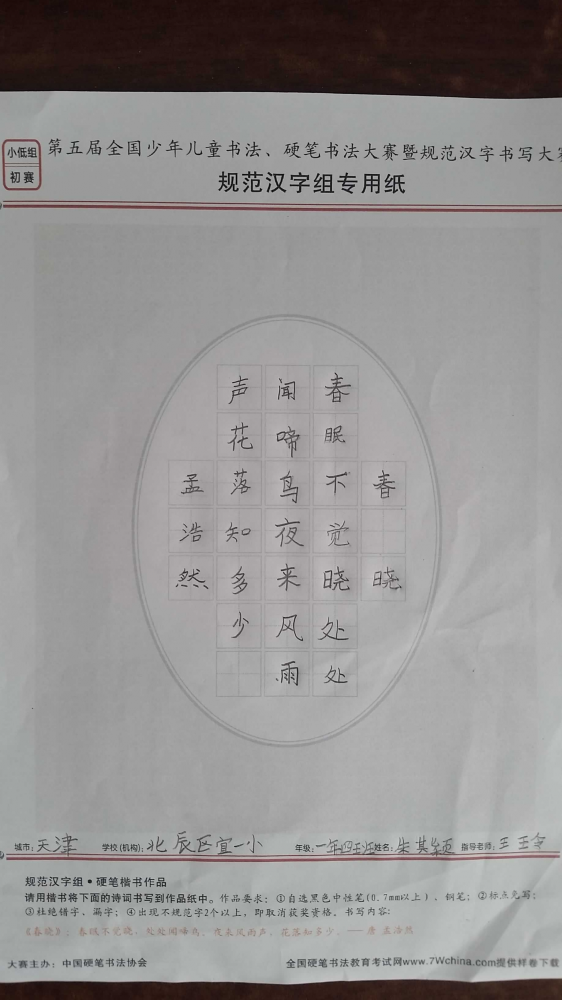 小低组
初赛
第五届全国少年儿童书法、硬笔书法大赛暨规范汉字书写大赛
规范汉字组专用纸
春晓
春眠不觉晓处处
闻啼鸟夜来风雨
声花落知多少
孟浩然
城市:天津 学校(机构):北辰区宜一小 年级:一年四班 姓名:朱其 指导老师:王
规范汉字组•硬笔楷书作品
请用楷书将下面的诗词书写到作品纸中。作品要求:①自选黑色中性笔(0.7mm以上)、钢笔;②标点免写;
③杜绝错字、漏字;④出现不规范字2个以上,即取消获奖资格。书写内容:
《春晓》:春眠不觉晓,处处闻啼鸟。夜来风雨声,花落知多少。——唐 孟浩然
大赛主办:中国硬笔书法协会 全国硬笔书法教育考试网www.7Wchina.com提供样卷下载